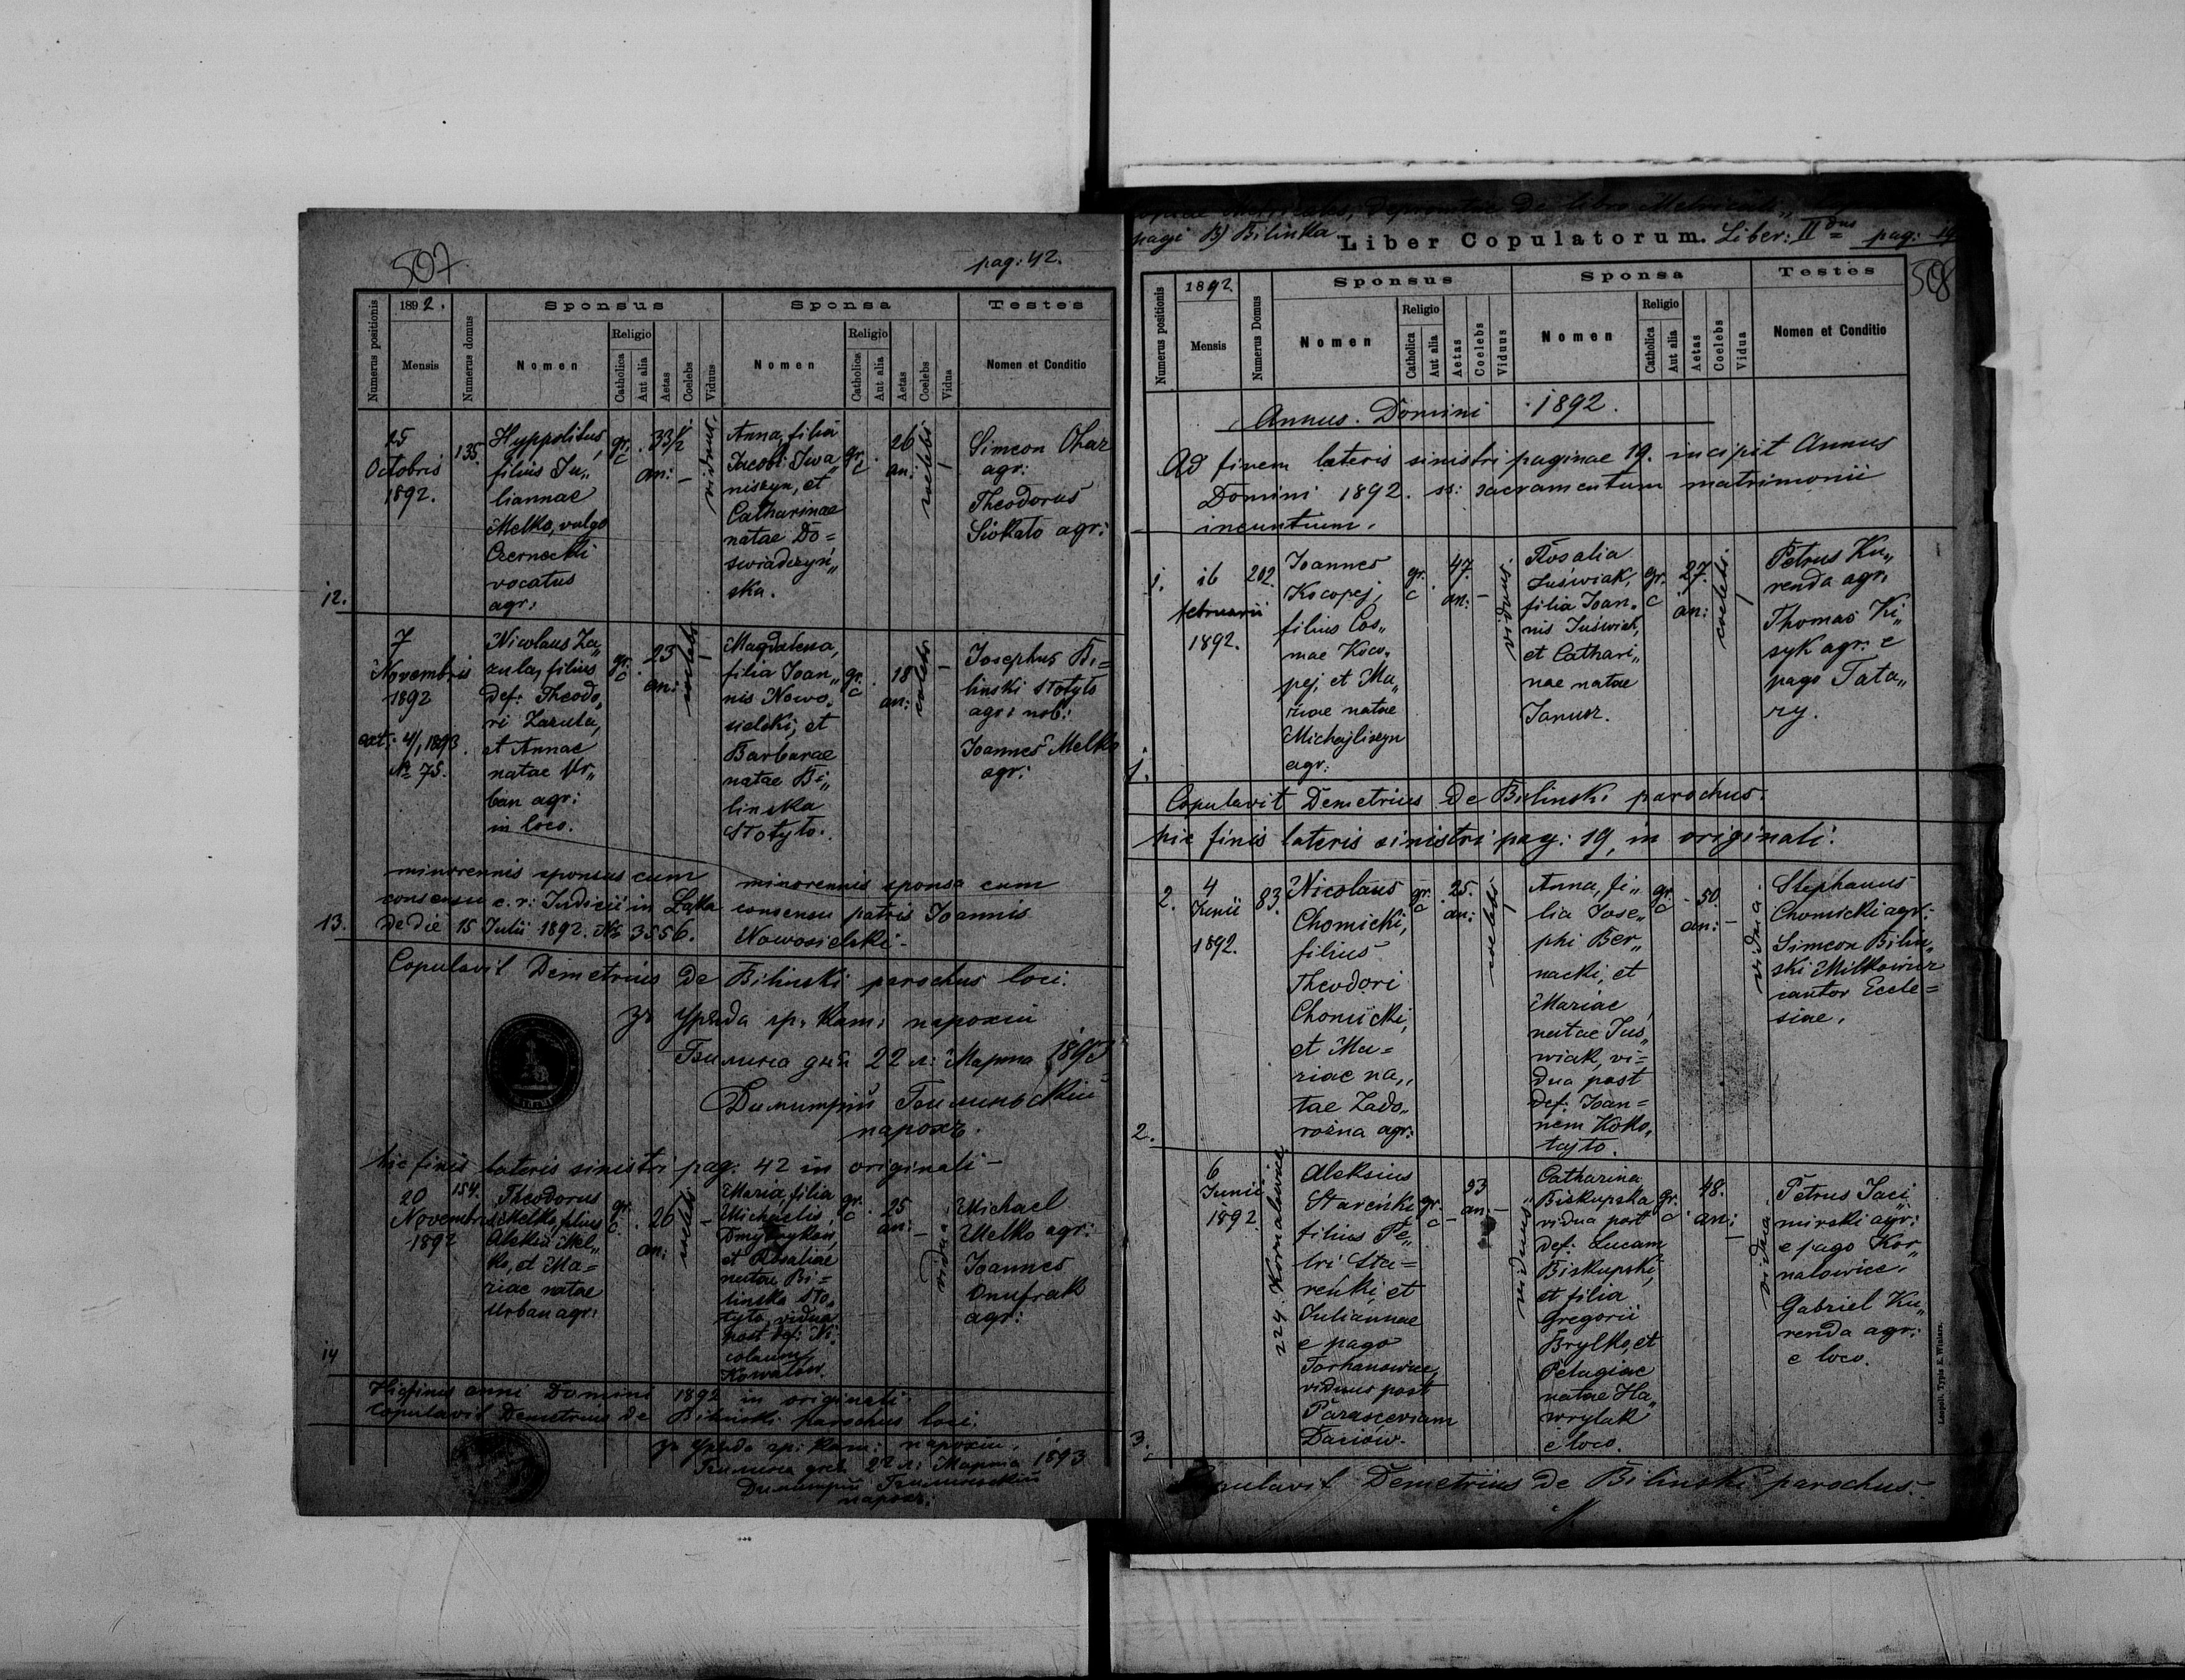 507.
pag: 42.
Numerus positionis
1892.
Mensis
Numerus domus
Sponsus
Nomen
Religio
Catholica
Aut alia
Aetas
Coelebs
Viduus
Sponsa
Nomen
Religio
Catholica
Aut alia
Aetas
Coelebs
Vidua
Testes
Nomen et Conditio
12.
25
Octobris
1892.
135.
Hyppolitus,
filius Ju„
liannae
Melko, vulgo
Czernecki
vocatus
agr:
gr.
c
33½
an:
viduus
Anna, filia
Jacobi Iwa„
niszyn, et
Catharinae
natae Do=
swiadczyń„
ska.
gr.
c
26
an:
coelebs
Simeon Ohar
agr:
Theodorus
Siokało agr:
13.
7
Novembris
1892
ext: 4/1 1893.
№ 75.
Nicolaus Za„
zula, filius
def: Theodo„
ri Zazula,
et Annae
natae Ur„
ban agr:
in loco.
gr.
c
23
an:
coelebs
Magdalena,
filia Joan„
nis Nowo„
sielski, et
Barbarae
natae Bi„
linska
Stotyło.
gr.
c
18
an:
coelebs
Josephus Bi=
linski Stotyło
agr: nob:
Joannes Melko
agr:
minorennis sponsus cum
consensu c. r: Judicii in Łąka
de die 15 Julii 1892. № 3556.
minorennis sponsa cum
consensu patris Joannis
Nowosielski -
Copulavit Demetrius de Bilinski parochus loci.
зъ Уряда гр. кат: парохіи
Билинка дня 22 л: Марта 1893
Димитрій Билиньскій
парохъ.
hic finis lateris sinistri pag: 42 in originali -
14
20
Novembris
1892
154.
Theodorus
Melko, filius
Aleksii Mel„
ko, et Ma=
riae natae
Urban agr:
gr.
c.
26
an:
coelebs
Maria, filia
Michaelis,
Dmytrykow,
et Rosaliae
natae Bi=
linska Sto„
tyło, vidua
post def: Ni„
colaum
Kowalow.
gr.
c
25
an:
vidua
Michael
Melko agr:
Joannes
Onufrak
agr:
Hic finis anni Domini 1892 in originali
Copulavit Demetrius de Bilinski parochus loci.
зъ Уряда гр: кат: парохіи.
Билинка дня 22 л: Марта 1893
Димитрій Билиньскій
парохъ.
Copiae depromptae de libro Metricali
pagi B) Bilinka
Liber Copulatorum. Liber: II dus pag: 19
508
Numerus positionis
1892.
Mensis
Numerus Domus
Sponsus
Nomen
Religio
Catholica
Aut alia
Aetas
Coelebs
Viduus
Sponsa
Nomen
Religio
Catholica
Aut alia
Aetas
Coelebs
Vidua
Testes
Nomen et Conditio
Annus Domini 1892.
Ad finem lateris sinistri paginae 19. incipit Annus
Domini 1892. ss: sacramentum matrimonii
incuntium.
1.
1.
16
februarii
1892.
202.
Joannes
Kocopej,
filius Cos„
mae Koco„
pej, et Ma„
riae natae
Michajliszyn
agr:
gr.
c
47.
an:
viduus
Rosalia
Juświak,
filia Joan„
nis Juświak,
et Cathari„
nae natae
Janusz.
gr.
c
27.
an:
coelebs
Petrus Ku„
renda agr:
Thomas Ki„
syk agr: e
pago Tata„
ry.
Copulavit Demetrius de Bilinski parochus.
hic finis lateris sinistri pag: 19, in originali.
2.
2.
4
Junii
1892.
83.
Nicolaus
Chomicki,
filius
Theodori
Chomicki,
et Ma=
riae na„
tae Zado„
rożna agr:
gr.
c
25.
an:
coelebs
Anna, fi„
lia Jose„
phi Ber„
nacki, et
Mariae
natae Jus„
wiak, vi=
dua post
def: Joan=
nem Koko„
tajło.
gr.
c
50.
an:
vidua
Stephanus
Chomicki agr:
Simeon Bilin„
ski Milkowicz
cantor Eccle=
siae.
3.
6
Junii
1892.
224 Kornalowice
Aleksius
Stareńki
filius Pe„
tri Sta=
reńki, et
Juliannae
e pago
Torhanowice,
viduus post
Parasceviam
Daciow.
gr.
c
53
an:
viduus
Catharina
Biskupska
vidua post
def: Lucam
Biskupski,
et filia
Gregorii
Brylko, et
Pelagiae
natae Ha„
wrylak
e loco.
gr.
c
48.
an:
vidua
Petrus Jaci„
mirski agr:
e pago Kor„
nalowice.
Gabriel Ku„
renda agr:
e loco.
Copulavit Demetrius de Bilinski parochus.
Leopoli. Typis E. Winiarz.